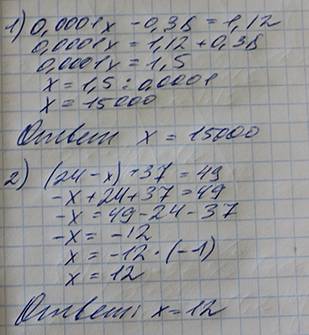 1) 0,0001x - 0,38 = 1,12
0,0001x = 1,12 + 0,38
0,0001x = 1,5
x = 1,5 : 0,0001
x = 15000
Ответ x = 15000
2) (24 - x) + 37 = 49
-x + 24 + 37 = 49
-x = 49 - 24 - 37
-x = -12
x = -12 · (-1)
x = 12
Ответ: x = 12